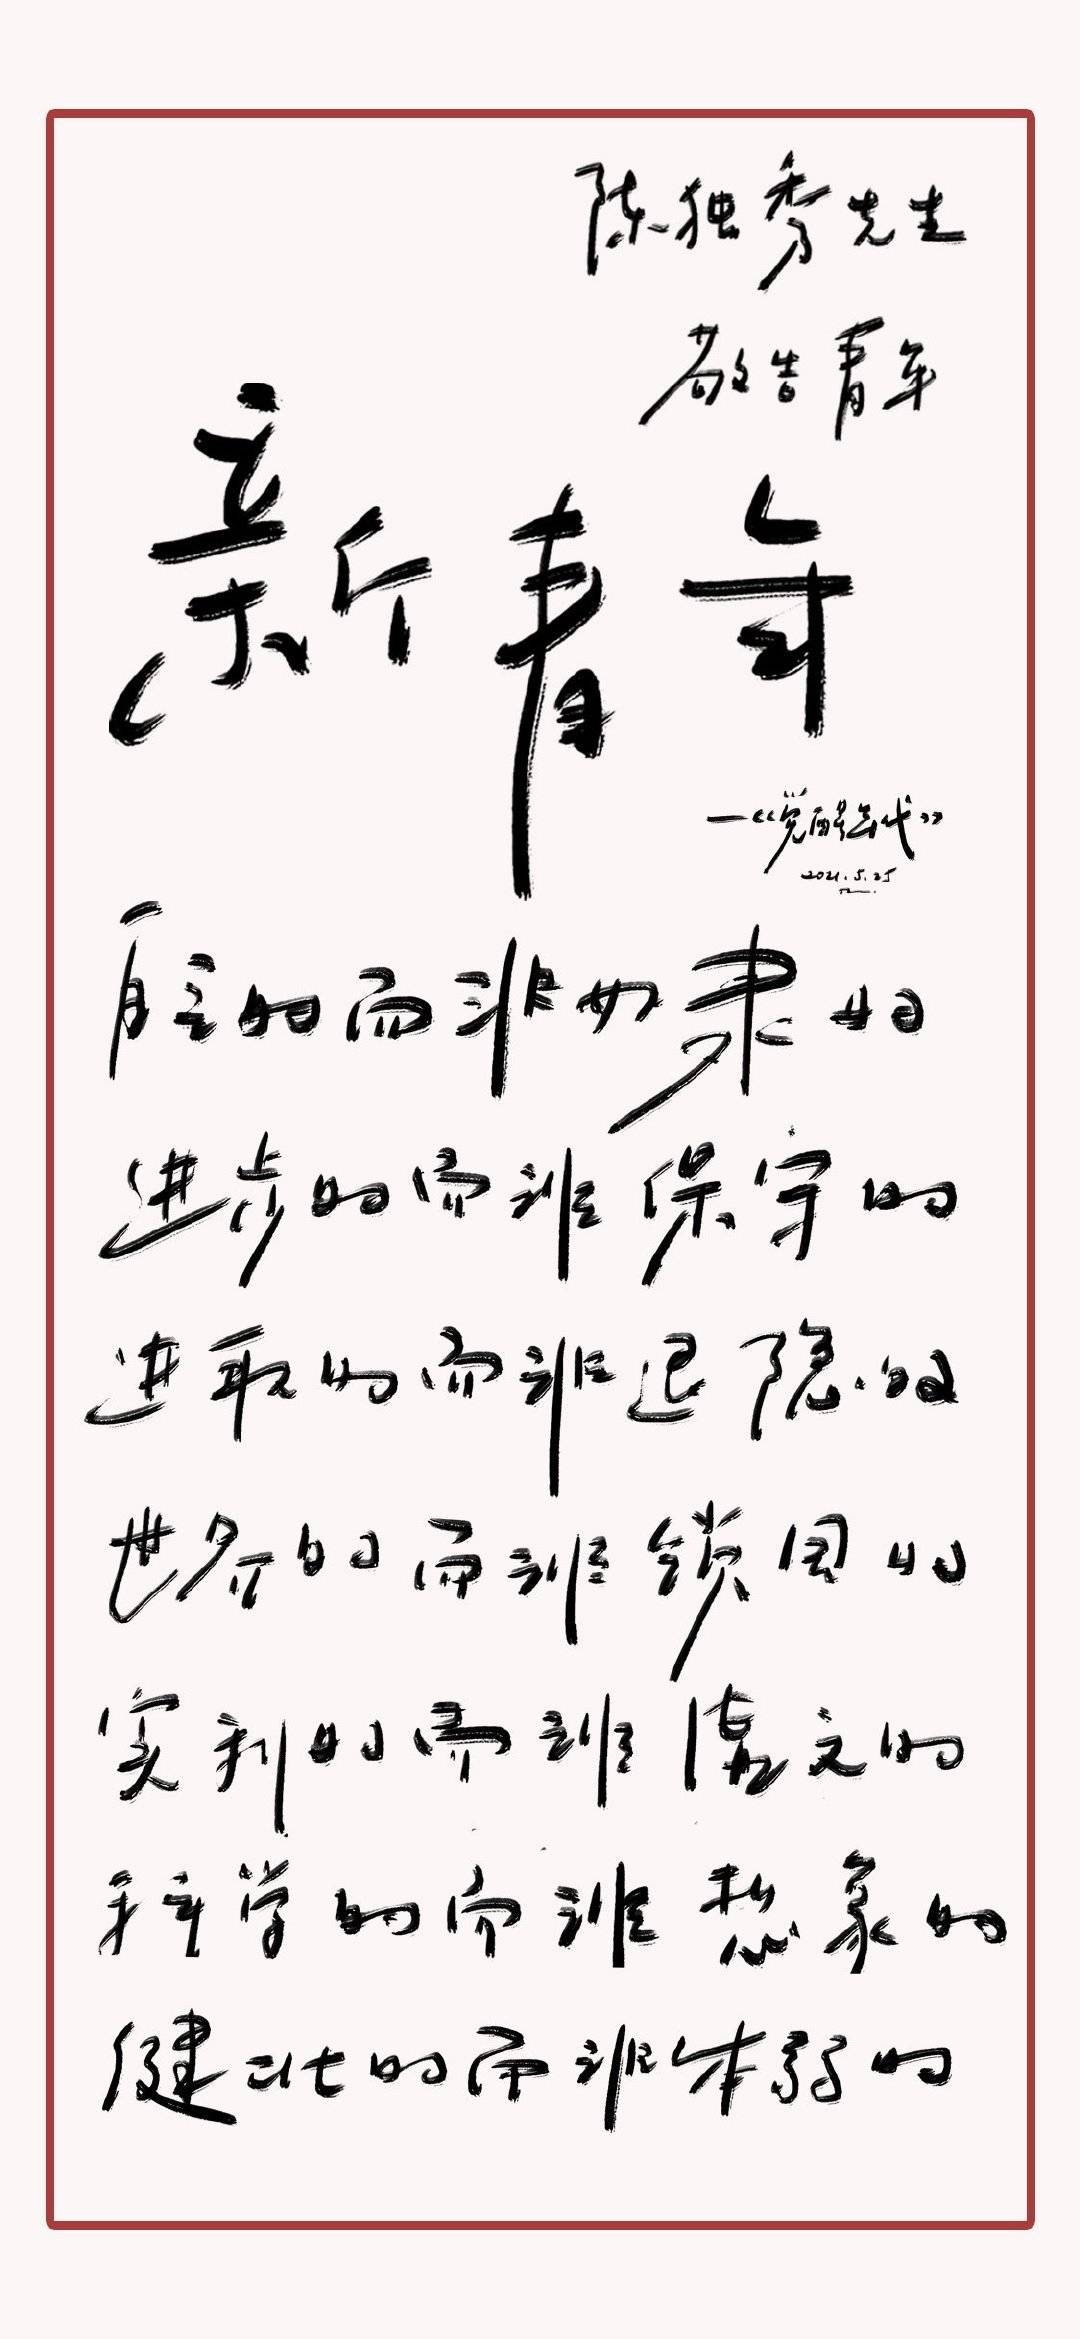 陈独秀先生
敬告青年
新青年
—《觉醒年代》
2021.5.25
自主的而非奴隶的
进步的而非保守的
进取的而非退隐的
世界的而非锁国的
实利的而非虚文的
科学的而非想象的
健壮的而非体弱的